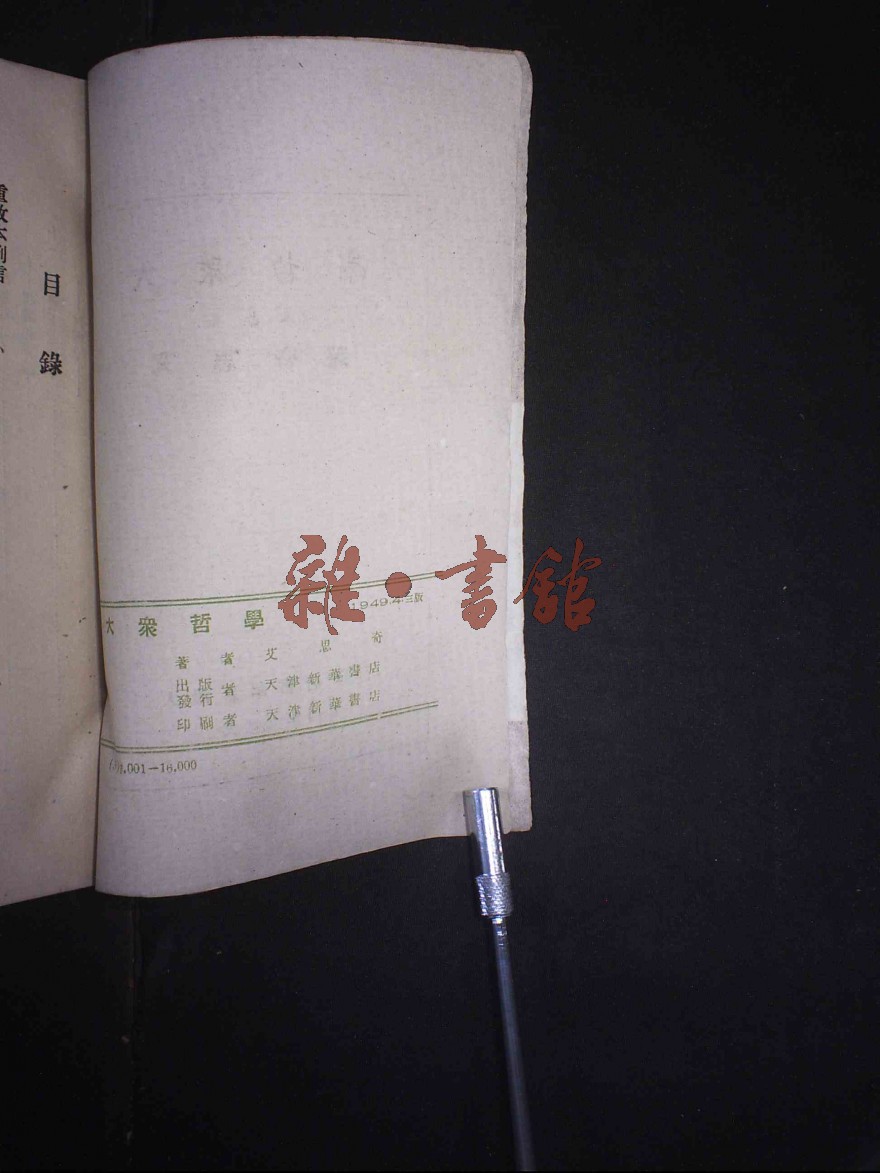 目錄
大衆哲學
1949.4三版
著者 艾思奇
出版發行者 天津新華書店
印刷者 天津新華書店
001—16.000
雜•書館